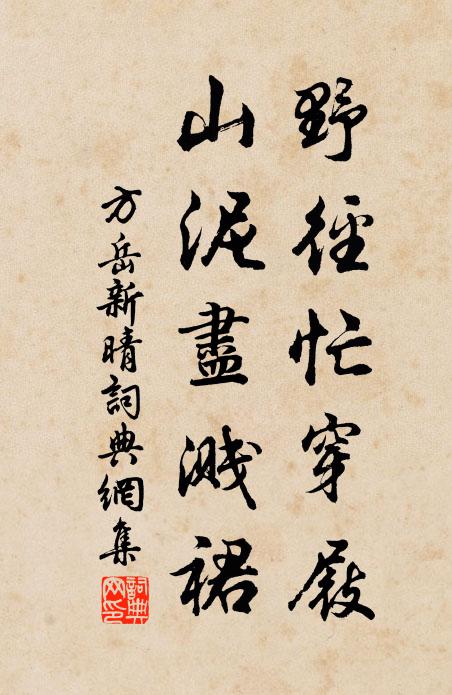 野徑忙穿屐
山泥盡濺裙
方岳新晴詞典網集
詞典网印